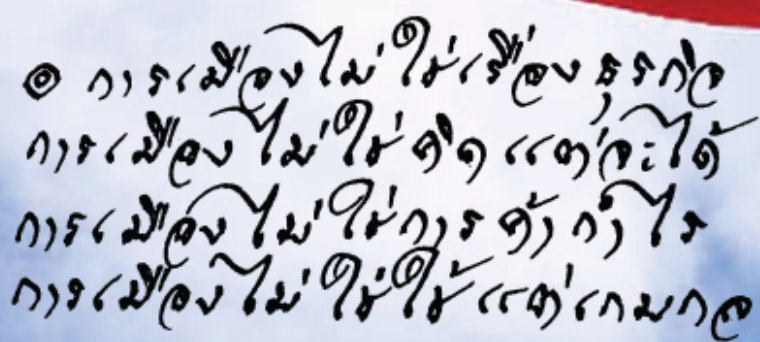 ๏ การเมืองไม่ใช่เรื่องธุรกิจ
การเมืองไม่ใช่คิดแต่จะได้
การเมืองไม่ใช่การค้ากำไร
การเมืองไม่ใช่ใช้แต่เกมกล